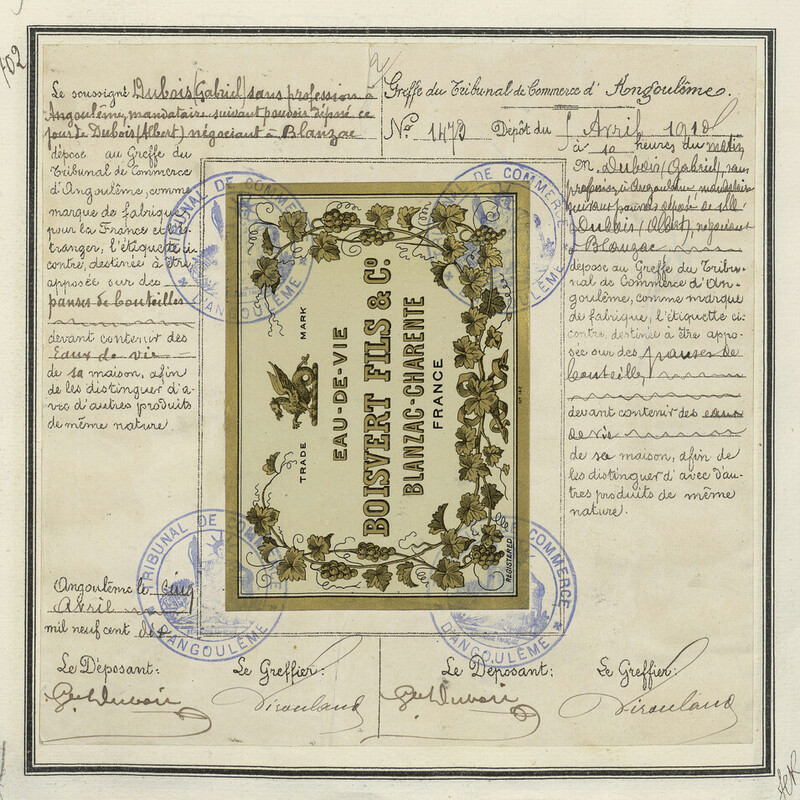 102
Le soussigné Dubois (Gabriel) sans profession à
Angoulême, mandataire suivant pouvoir déposé ce
jour de Dubois (Albert) négociant à Blanzac
dépose au Greffe du
Tribunal de Commerce
d'Angoulême, comme
marque de fabrique
pour la France et l'é-
tranger, l'étiquette ci-
contre, destinée à être
apposée sur des
panses de bouteilles
devant contenir des
Eaux de vie
de sa maison, afin
de les distinguer d'a-
vec d'autres produits
de même nature.
Angoulême le cinq
Avril
mil neuf cent dix
Le Déposant:
Le Greffier:
Gel Dubois
Greffe du Tribunal de Commerce d' Angoulême.
No 1473 Dépôt du 5 Avril 1910
à 10 heures du matin
M. Dubois (Gabriel), sans
profession, à Angoulême mandataire
suivant pouvoir déposé de M.
Dubois (Albert), négociant
Blanzac
dépose au Greffe du Tribu-
nal de Commerce d'An-
goulême, comme marque
de fabrique, l'étiquette ci-
contre, destinée à être appo-
sée sur des panses de
bouteille,
devant contenir des eaux
de vie
de sa maison, afin de
les distinguer d'avec d'au-
tres produits de même
nature.
Le Déposant:
Le Greffier:
Gel Dubois
TRADE MARK
EAU-DE-VIE
BOISVERT FILS & Co.
BLANZAC-CHARENTE
FRANCE
REGISTERED
TRIBUNAL DE COMMERCE
D'ANGOULÊME
TRIBUNAL DE COMMERCE
D'ANGOULÊME
TRIBUNAL DE COMMERCE
D'ANGOULÊME
TRIBUNAL DE COMMERCE
D'ANGOULÊME